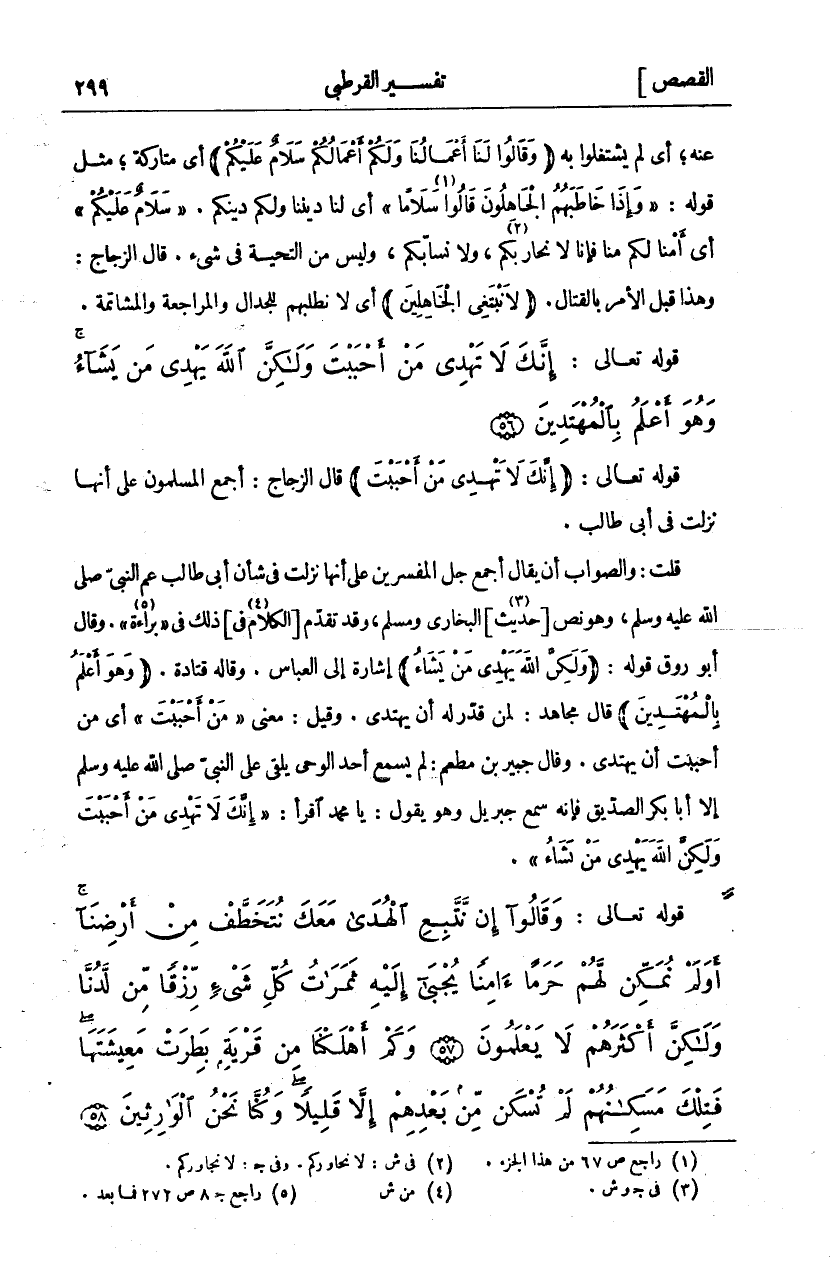 القصص ] تفسير القرطبي ٢٩٩
عنه؛ أى لم يشتغلوا به ﴿ وَقَالُوا لَنَا أَعْمَالُنَا وَلَكُمْ أَعْمَالُكُمْ سَلَامٌ عَلَيْكُمْ ﴾ أى متاركة ؛ مثل
قوله : « وَإِذَا خَاطَبَهُمُ الْجَاهِلُونَ قَالُوا سَلَامًا » (١) أى لنا ديننا ولكم دينكم . « سَلَامٌ عَلَيْكُمْ »
أى أَمْنا لكم منا فإنا لا نحاربكم (٢) ، ولا نسابّكم ، وليس من التحية فى شىء . قال الزجاج :
وهذا قبل الأمر بالقتال. ﴿ لَا نَبْتَغِى الْجَاهِلِينَ ﴾ أى لا نطلبهم للجدال والمراجعة والمشاتمة .
قوله تعالى : إِنَّكَ لَا تَهْدِى مَنْ أَحْبَبْتَ وَلَـٰكِنَّ ٱللَّهَ يَهْدِى مَن يَشَآءُ ۚ
وَهُوَ أَعْلَمُ بِٱلْمُهْتَدِينَ ٥٦
قوله تعالى : ﴿ إِنَّكَ لَا تَهْدِى مَنْ أَحْبَبْتَ ﴾ قال الزجاج : أجمع المسلمون على أنها
نزلت فى أبى طالب .
قلت : والصواب أن يقال أجمع جل المفسرين على أنها نزلت فى شأن أبى طالب عم النبىّ صلى
الله عليه وسلم ، وهو نص [حديث] (٣) البخارى ومسلم، وقد تقدّم [الكلام فى] (٤) ذلك فى « براءة » (٥) . وقال
أبو روق قوله : ﴿ وَلَكِنَّ اللهَ يَهْدِى مَنْ يَشَاءُ ﴾ إشارة إلى العباس . وقاله قتادة . ﴿ وَهُوَ أَعْلَمُ
بِالْمُهْتَدِينَ ﴾ قال مجاهد : لمن قدر له أن يهتدى . وقيل : معنى « مَنْ أَحْبَبْتَ » أى من
أحببت أن يهتدى . وقال جبير بن مطعم : لم يسمع أحد الوحى يلقى على النبىّ صلى الله عليه وسلم
إلا أبا بكر الصدّيق فإنه سمع جبريل وهو يقول : يا محمد ٱقرأ : « إِنَّكَ لَا تَهْدِى مَنْ أَحْبَبْتَ
وَلَكِنَّ اللهَ يَهْدِى مَنْ يَشَاءُ » .
قوله تعالى : وَقَالُوٓا إِن نَّتَّبِعِ ٱلْهُدَىٰ مَعَكَ نُتَخَطَّفْ مِنْ أَرْضِنَآ ۚ
أَوَلَمْ نُمَكِّن لَّهُمْ حَرَمًا ءَامِنًا يُجْبَىٰٓ إِلَيْهِ ثَمَرَٰتُ كُلِّ شَىْءٍ رِّزْقًا مِّن لَّدُنَّا
وَلَـٰكِنَّ أَكْثَرَهُمْ لَا يَعْلَمُونَ ٥٧ وَكَمْ أَهْلَكْنَا مِن قَرْيَةٍۭ بَطِرَتْ مَعِيشَتَهَا ۖ
فَتِلْكَ مَسَـٰكِنُهُمْ لَمْ تُسْكَن مِّنۢ بَعْدِهِمْ إِلَّا قَلِيلًا ۖ وَكُنَّا نَحْنُ ٱلْوَٰرِثِينَ ٥٨
(١) راجع ص ٦٧ من هذا الجزء . (٢) فى ش : لا نحاوركم . وفى جـ : لا نجاوركم .
(٣) فى جـ و ش . (٤) من ش (٥) راجع جـ ٨ ص ٢٧٢ فما بعد .